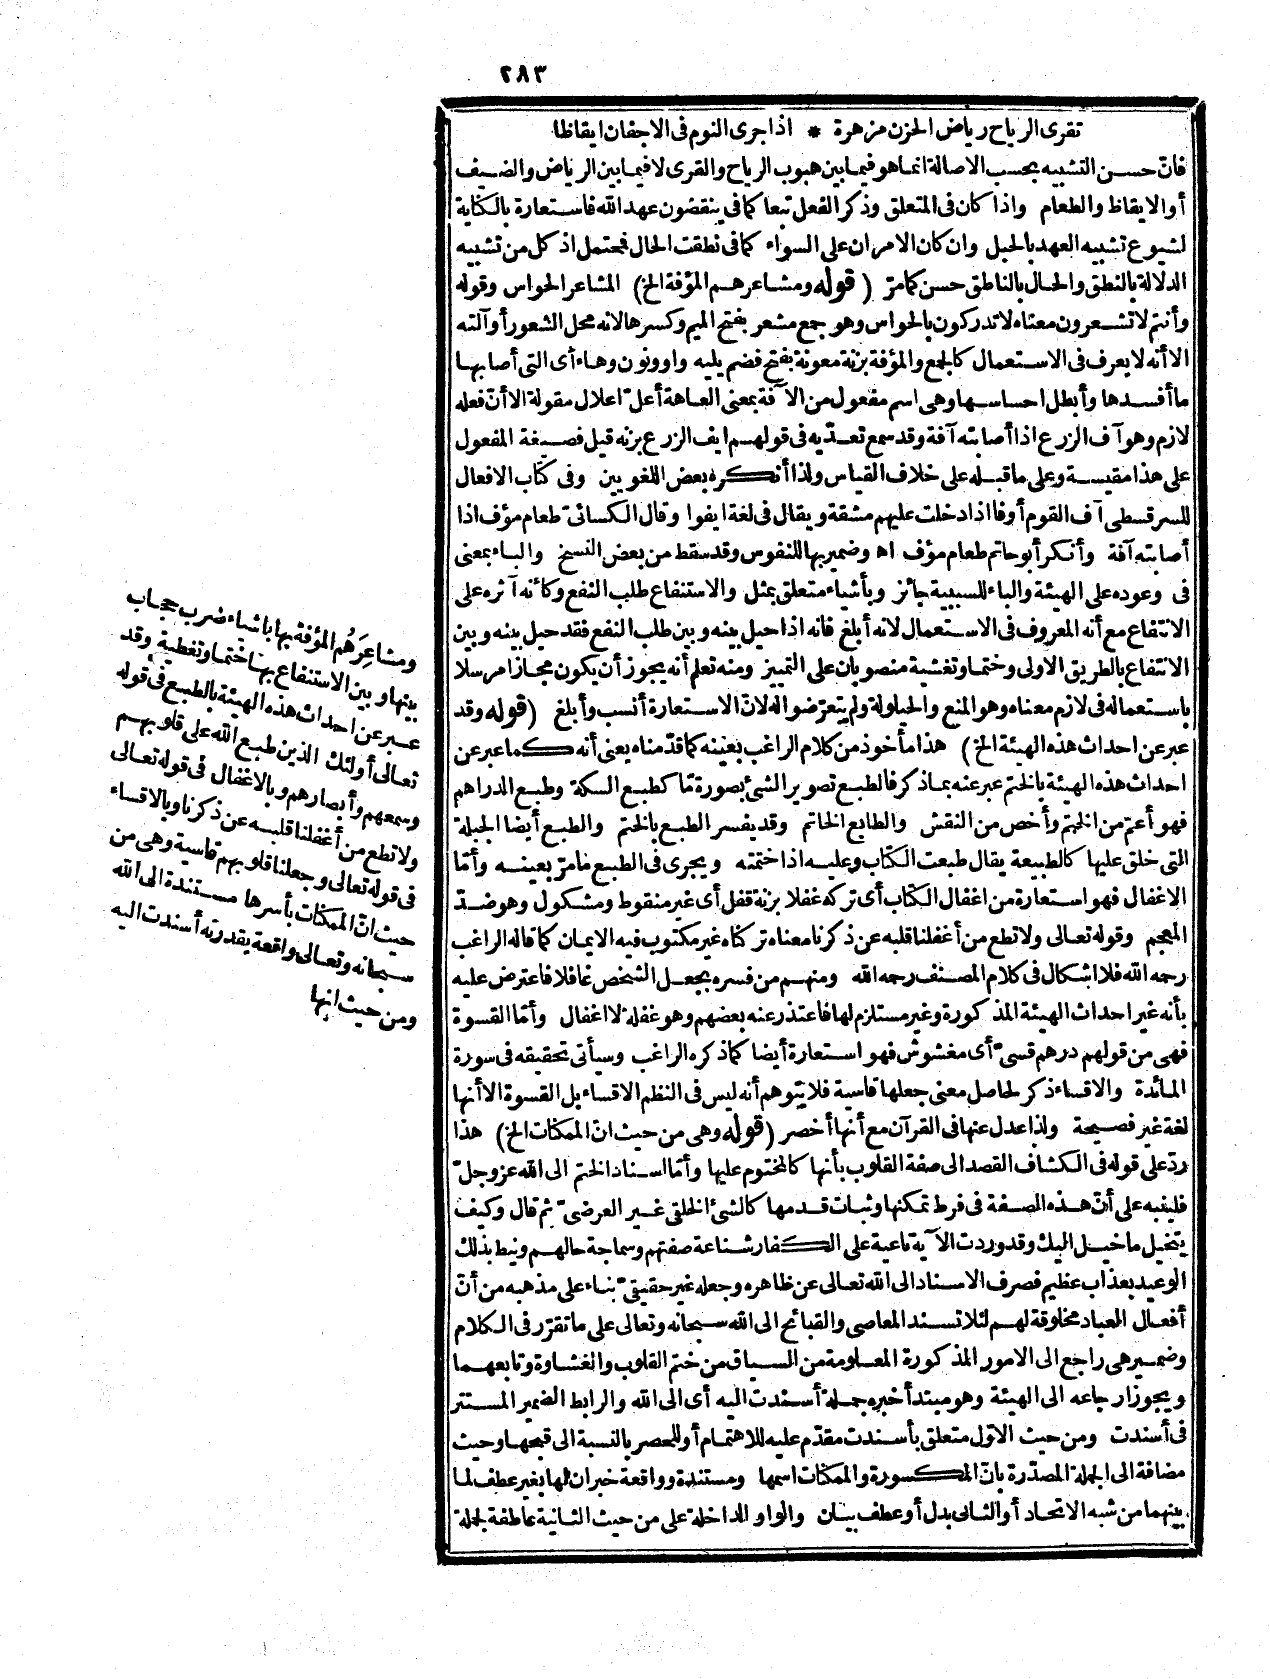 ٢٨٣
تقرى الرياح رياض الحزن مزهرة * اذا جرى النوم فى الاجفان ايقاظا
فانّ حسن التشبيه بحسب الاصالة انما هو فيما بين هبوب الرياح والقرى لا فيما بين الرياض والضيف
أو الايقاظ والطعام واذا كان فى المتعلق وذكر الفعل تبعا كما فى ينقضون عهد الله فاستعارة بالكناية
لشيوع تشبيه العهد بالحبل وان كان الامران على السواء كما فى نطقت الحال فمحتمل اذ كل من تشبيه
الدلالة بالنطق والحال بالناطق حسن كما مرّ (قوله ومشاعرهم المؤفة الخ) المشاعر الحواس وقوله
وأنتم لا تشعرون معناه لا تدركون بالحواس وهو جمع مشعر بفتح الميم وكسرها لانه محل الشعور أو آلته
الا أنه لا يعرف فى الاستعمال كالجمع والمؤفة بزنة معونة بفتح فضم يليه واو ونون وهاء أى التى أصابها
ما أفسدها وأبطل احساسها وهى اسم مفعول من الآفة بمعنى العاهة أعلّ اعلال مقولة الا أنّ فعله
لازم وهو آف الزرع اذا أصابته آفة وقد سمع تعدّيه فى قولهم ايف الزرع بزنة قيل فصيغة المفعول
على هذا مقيسة وعلى ما قبله على خلاف القياس ولذا أنكره بعض اللغويين وفى كتاب الافعال
للسرقسطى آف القوم أوفا اذا دخلت عليهم مشقة ويقال فى لغة ايفوا وقال الكسائىّ طعام مؤف اذا
أصابته آفة وأنكر أبو حاتم طعام مؤف اه وضمير بها للنفوس وقد سقط من بعض النسخ والباء بمعنى
فى وعوده على الهيئة والباء للسببية جائز وبأشياء متعلق بمثل والاستنفاع طلب النفع وكأنه آثره على
الانتفاع مع أنه المعروف فى الاستعمال لانه أبلغ فانه اذا حيل بينه وبين طلب النفع فقد حيل بينه وبين
الانتفاع بالطريق الاولى وختما وتغشية منصوبان على التمييز ومنه تعلم أنه يجوز أن يكون مجازا مرسلا
باستعماله فى لازم معناه وهو المنع والحيلولة ولم يتعرّضوا له لانّ الاستعارة أنسب وأبلغ (قوله وقد
عبر عن احداث هذه الهيئة الخ) هذا مأخوذ من كلام الراغب بعينه كما قدّمناه يعنى أنه كما عبر عن
احداث هذه الهيئة بالختم عبر عنه بما ذكر فالطبع تصوير الشئ بصورة مّا كطبع السكة وطبع الدراهم
فهو أعمّ من الختم وأخص من النقش والطابع الخاتم وقد يفسر الطبع بالختم والطبع أيضا الجبلة
التى خلق عليها كالطبيعة يقال طبعت الكتاب وعليه اذا ختمته ويجرى فى الطبع ما مرّ بعينه وأمّا
الاغفال فهو استعارة من اغفال الكتاب أى تركه غفلا بزنة قفل أى غير منقوط ومشكول وهو ضدّ
المعجم وقوله تعالى ولا تطع من أغفلنا قلبه عن ذكرنا معناه تركناه غير مكتوب فيه الايمان كما قاله الراغب
رحمه الله فلا اشكال فى كلام المصنف رحمه الله ومنهم من فسره بجعل الشخص غافلا فاعترض عليه
بأنه غير احداث الهيئة المذكورة وغير مستلزم لها فاعتذر عنه بعضهم وهو غفلة لا اغفال وأمّا القسوة
فهى من قولهم درهم قسىّ أى مغشوش فهو استعارة أيضا كما ذكره الراغب وسيأتى تحقيقه فى سورة
المائدة والاقساء ذكر لحاصل معنى جعلها قاسية فلا يتوهم أنه ليس فى النظم الاقساء بل القسوة الا أنها
لغة غير فصيحة ولذا عدل عنها فى القرآن مع أنها أخصر (قوله وهى من حيث انّ الممكنات الخ) هذا
ردّ على قوله فى الكشاف القصد الى صفة القلوب بأنها كالمختوم عليها وأمّا اسناد الختم الى الله عز وجلّ
فلينبه على أنّ هذه الصفة فى فرط تمكنها وثبات قدمها كالشئ الخلقى غير العرضىّ ثم قال وكيف
يتخيل ما خيل اليك وقد وردت الآية ناعية على الكفار شناعة صفتهم وسماجة حالهم ونيط بذلك
الوعيد بعذاب عظيم فصرف الاسناد الى الله تعالى عن ظاهره وجعله غير حقيقىّ بناء على مذهبه من أنّ
أفعال العباد مخلوقة لهم لئلا تسند المعاصى والقبائح الى الله سبحانه وتعالى على ما تقرّر فى الكلام
وضمير هى راجع الى الامور المذكورة المعلومة من السياق من ختم القلوب والغشاوة وتابعهما
ويجوز ارجاعه الى الهيئة وهو مبتدأ خبره جملة أسندت اليه أى الى الله والرابط الضمير المستتر
فى أسندت ومن حيث الاوّل متعلق بأسندت مقدّم عليه للاهتمام أو للحصر بالنسبة الى قبحها وحيث
مضافة الى الجملة المصدّرة بانّ المكسورة والممكنات اسمها ومستندة وواقعة خبران لها بغير عطف لما
بينهما من شبه الاتحاد أو الثانى بدل أو عطف بيان والواو الداخلة على من حيث الثانية عاطفة لجملة
ومشاعِرَهُم المؤفة بها باشياء ضرب حجاب
بينها وبين الاستنفاع بها ختما وتغطية وقد
عبر عن احداث هذه الهيئة بالطبع فى قوله
تعالى أولئك الذين طبع الله على قلوبهم
وسمعهم وأبصارهم وبالاغفال فى قوله تعالى
ولا تطع من أغفلنا قلبه عن ذكرنا وبالاقساء
فى قوله تعالى وجعلنا قلوبهم قاسية وهى من
حيث انّ الممكنات بأسرها مستندة الى الله
سبحانه وتعالى واقعة بقدرته أسندت اليه
ومن حيث انها